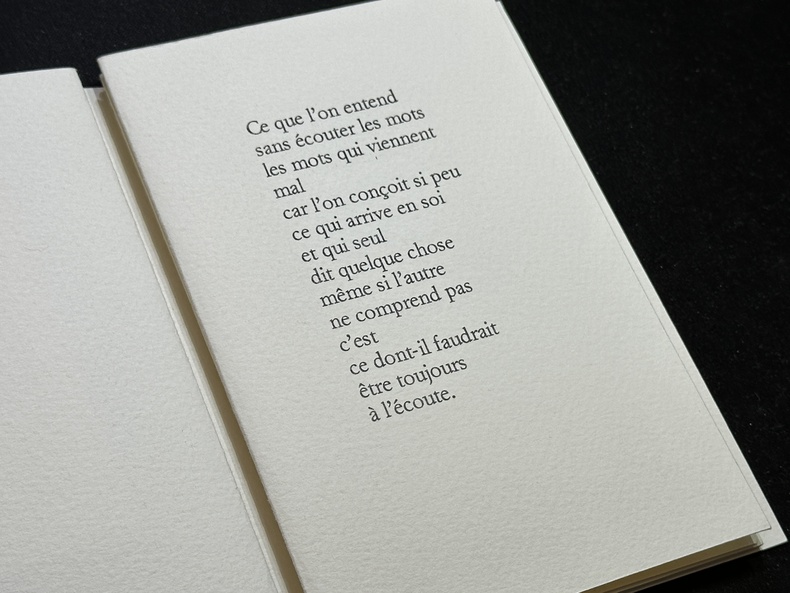 Ce que l'on entend
sans écouter les mots
les mots qui viennent
mal
car l'on conçoit si peu
ce qui arrive en soi
et qui seul
dit quelque chose
même si l'autre
ne comprend pas
c'est
ce dont-il faudrait
être toujours
à l'écoute.